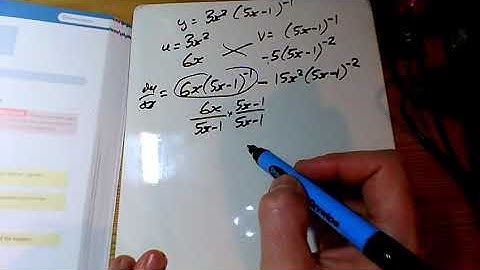 y = 3x² (5x-1)⁻¹
u = 3x² v = (5x-1)⁻¹
6x -5(5x-1)⁻²
dy/dx 6x(5x-1)⁻¹ - 15x²(5x-1)⁻²
6x/5x-1 × 5x-1/5x-1